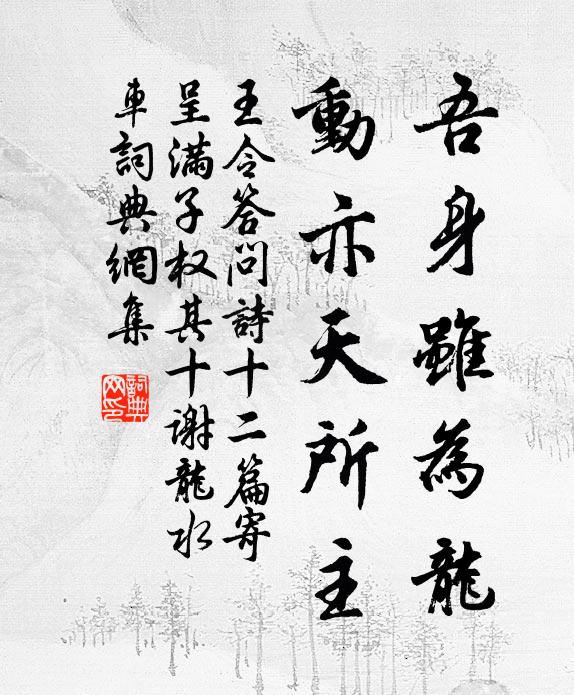 吾身雖為龍
動亦天所主
王令答問詩十二篇寄
呈滿子权其十謝龍水
車詞典網集
詞典
网印